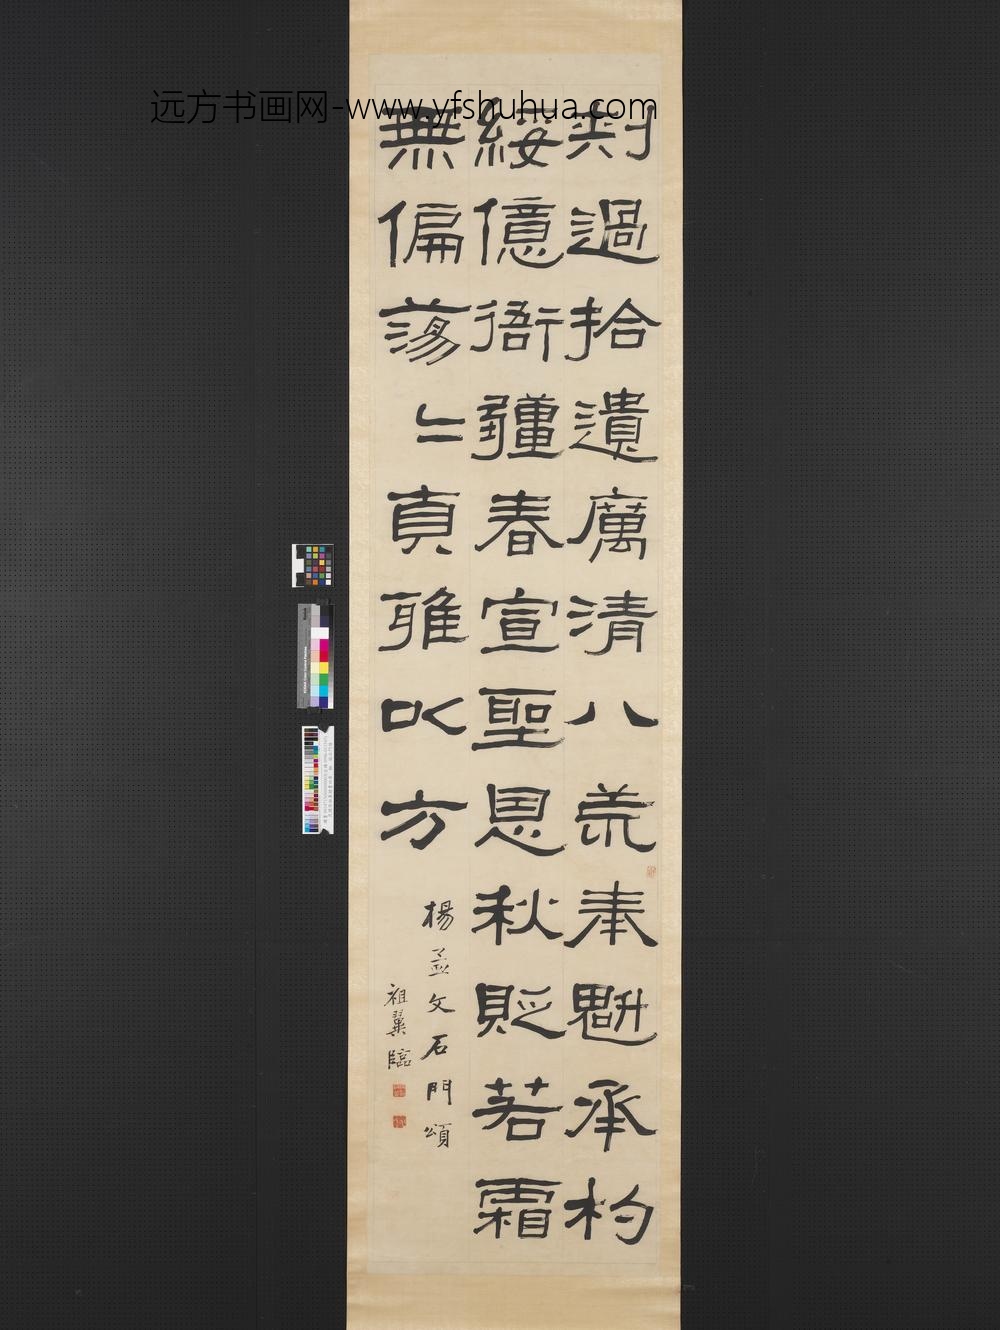 远方书画网-www.yfshuhua.com
刺過拾遺厲清八荒奉魁承杓
綏億衙疆春宣聖恩秋貶若霜
無偏蕩〻貞雅以方
楊孟文石門頌
祖翼臨